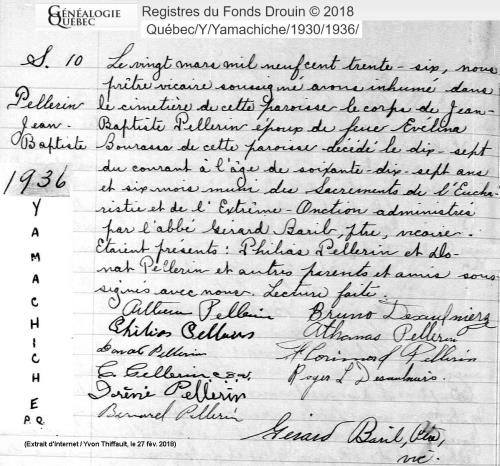 GÉNÉALOGIE
QUÉBEC
Registres du Fonds Drouin © 2018
Québec/Y/Yamachiche/1930/1936/
S. 10
Pellerin
Jean
Baptiste
1936
YAMACHICHE
P.Q.
Le vingt mars mil neuf cent trente-six, nous
prêtre vicaire soussigné avons inhumé dans
le cimetière de cette paroisse le corps de Jean-
Baptiste Pellerin époux de feue Evélina
Bourassa de cette paroisse décédé le dix-sept
du courant à l'âge de soixante-dix-sept ans
et six mois muni des Sacrements de l'Eucha-
ristie et de l'Extrême-Onction administrés
par l'abbé Gérard Baril, ptre, vicaire.
Étaient présents : Philias Pellerin et Do-
nat Pellerin et autres parents et amis sous-
signés avec nous. Lecture faite.
Pellerin Bruno Desaulniers
Philias Pellerin Athanas Pellerin
Donat Pellerin Florimond Pellerin
Pellerin c.s.v. Roger L Desaulniers.
Irénée Pellerin
Bernard Pellerin
Gérard Baril, ptre,
vic.
(Extrait d'Internet / Yvon Thiffault, le 27 fév. 2018)